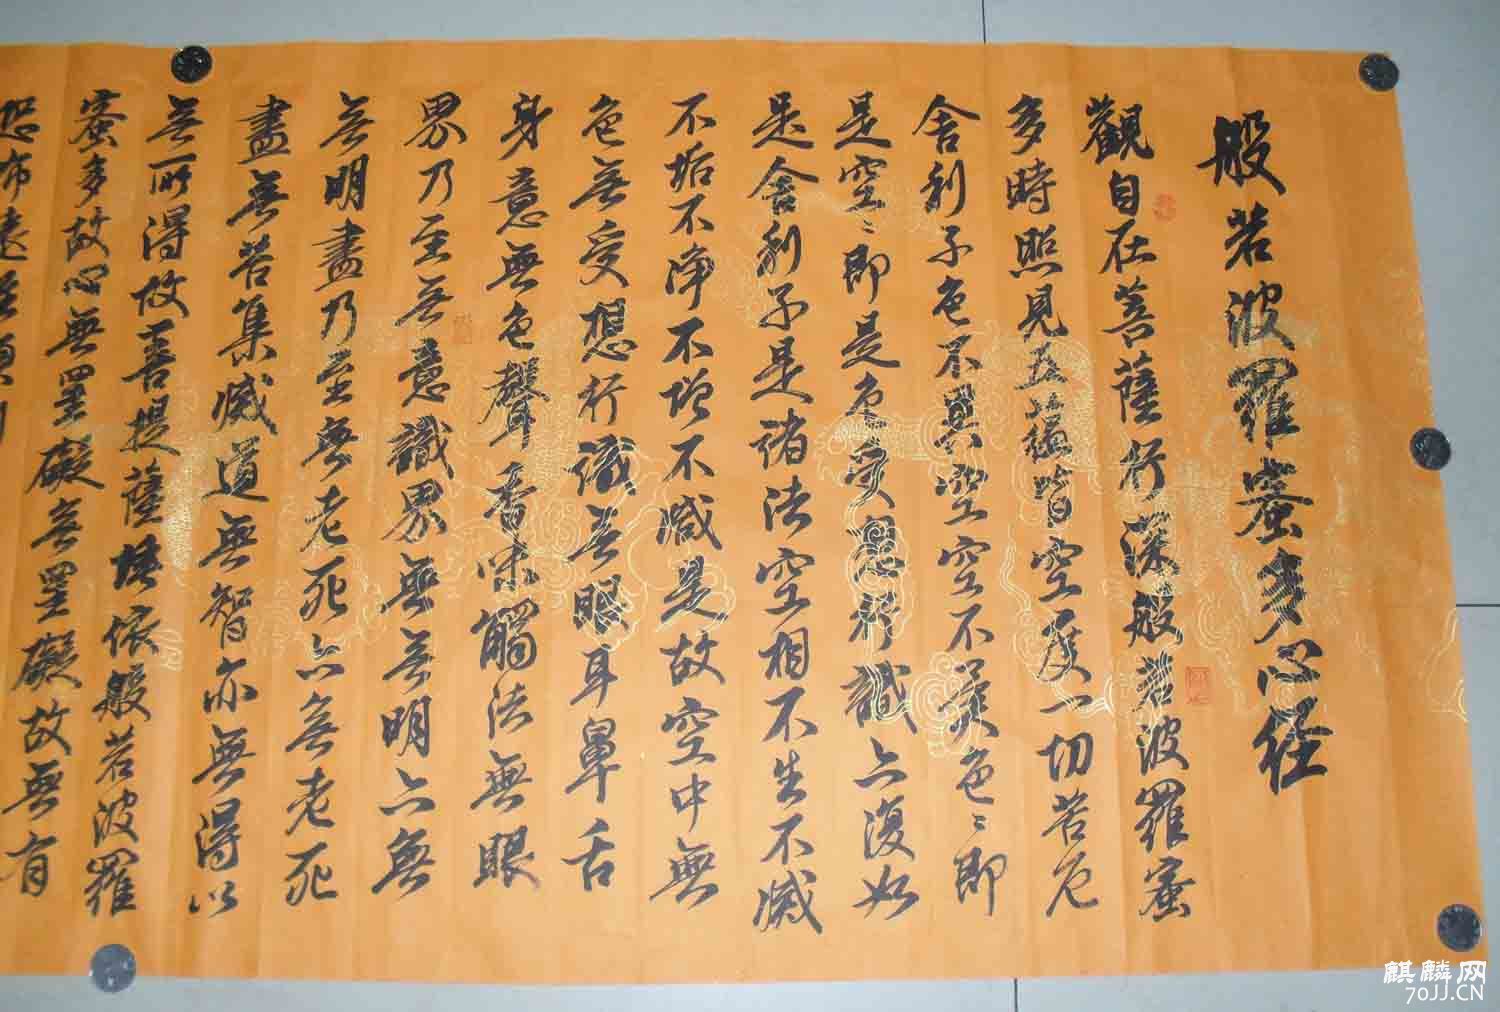 般若波羅蜜多心经
觀自在菩薩行深般若波羅蜜
多時照見五蘊皆空度一切苦厄
舍利子色不異空空不異色〻即
是空〻即是色受想行識亦復如
是舍利子是諸法空相不生不滅
不垢不淨不增不減是故空中無
色無受想行識無眼耳鼻舌
身意無色聲香味觸法無眼
界乃至無意識界無無明亦無
無明盡乃至無老死亦無老死
盡無苦集滅道無智亦無得以
無所得故菩提薩埵依般若波羅
蜜多故心無罣礙無罣礙故無有
恐怖遠
麒麟网
70JJ.CN